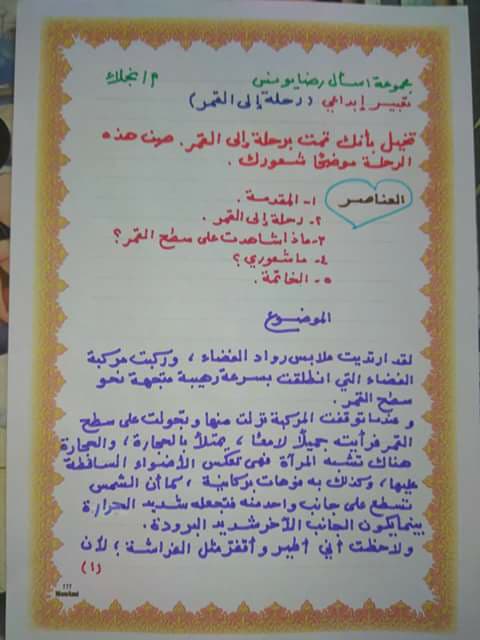 مجموعة أ/سأل رضا يونس م/ نجلاء
تعبير إبداعي (رحلة إلى القمر)
تخيل بأنك قمت برحلة إلى القمر. صف هذه
الرحلة موضحًا شعورك.
العناصر
١- المقدمة.
٢- رحلة إلى القمر.
٣- ماذا شاهدت على سطح القمر؟
٤- ما شعوري؟
٥- الخاتمة.
الموضوع
لقد ارتديت ملابس رواد الفضاء، وركبت مركبة
الفضاء التي انطلقت بسرعة رهيبة متجهة نحو
سطح القمر.
وعندما توقفت المركبة نزلت منها وتجولت على سطح
القمر فرأيته جميلًا لامعًا، ممتلأ بالحجارة، والحجارة
هناك تشبه المرآة فهي تعكس الأضواء الساقطة
عليها، وكذلك به فوهات بركانية، كما أن الشمس
تسطع على جانب واحد منه فتجعله شديد الحرارة
بينما يكون الجانب الآخر شديد البرودة.
ولاحظت أني أطير وأقفز مثل الفراشة؛ لأن
(١)